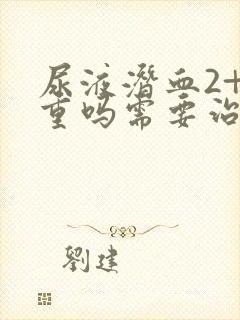 尿液潜血2+
重吗需要治
劉建